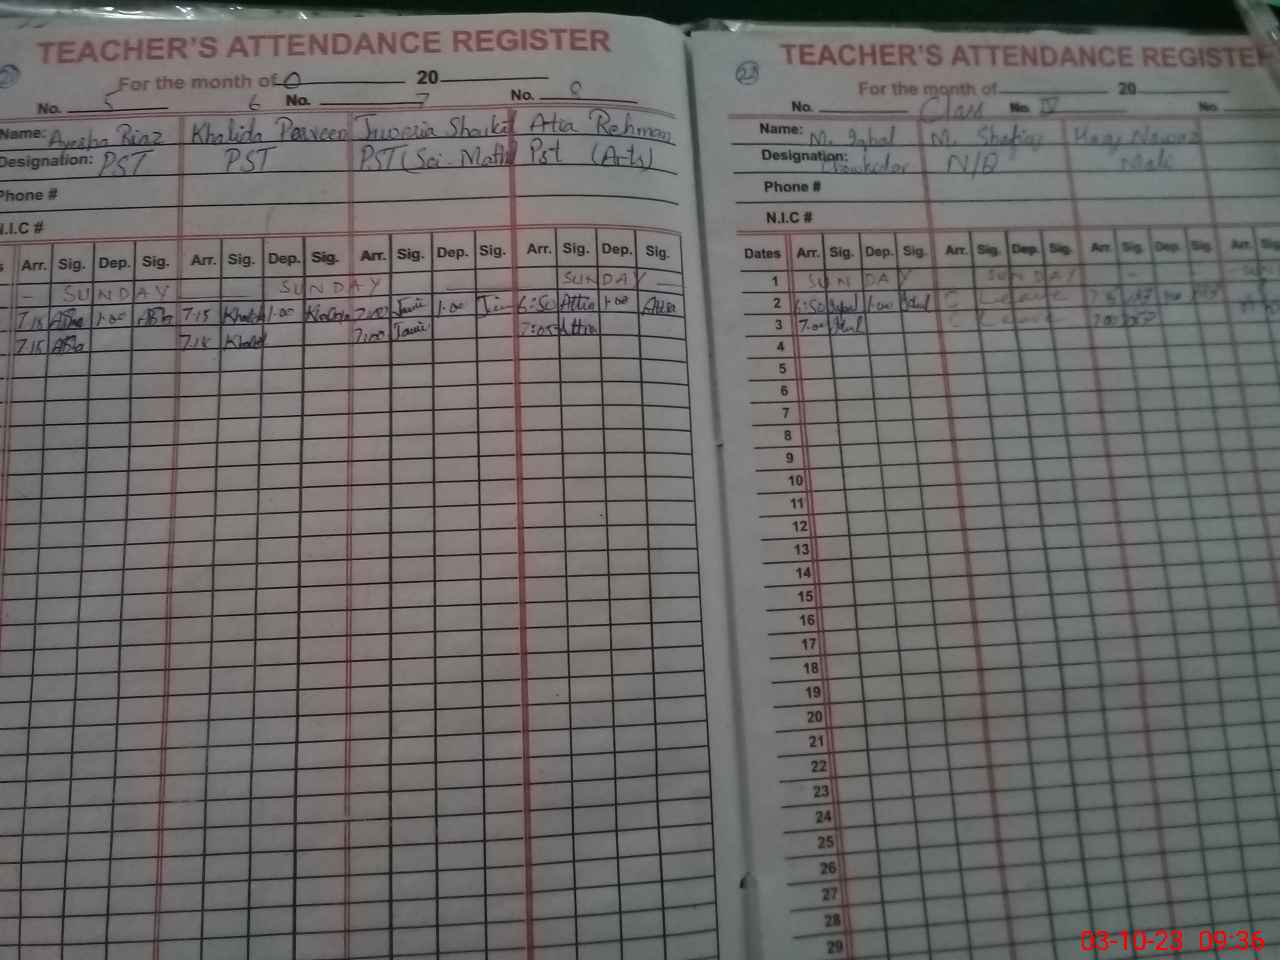 TEACHER'S ATTENDANCE REGISTER
For the month of 20
No. 5 6 No. 7 No. 8
Name: Ayesha Riaz Khalida Parveen Juwaria Shaikh Atia Rehman
Designation: PST PST PST (Sci. Math) Pst (Arts)
Phone #
N.I.C #
Arr. Sig. Dep. Sig. Arr. Sig. Dep. Sig. Arr. Sig. Dep. Sig. Arr. Sig. Dep. Sig.
SUNDAY SUNDAY SUNDAY
7.15 1.00 7.15 1.00 7.00 1.00 6:50 Attia 1.00 Attia
7.15 7.15 7.00 7:05 Attia
TEACHER'S ATTENDANCE REGISTER
For the month of 20
No. Class No. IV No.
Name: M. Iqbal M. Shafiq Haq Nawaz
Designation: Chowkidar N/Q Mali
Phone #
N.I.C #
Dates Arr. Sig. Dep. Sig. Arr. Sig. Dep. Sig. Arr. Sig. Dep. Sig. Arr. Sig.
1 SUNDAY SUNDAY
2 6:50 1.00 C Leave
3 7.00 C Leave 7.00
4
5
6
7
8
9
10
11
12
13
14
15
16
17
18
19
20
21
22
23
24
25
26
27
28
29
03-10-23 09:36